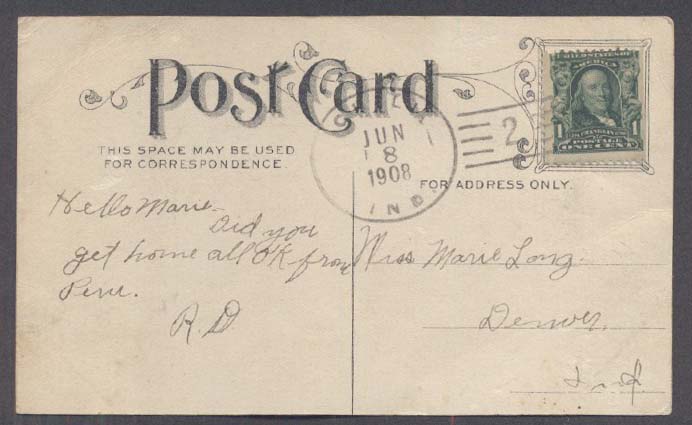 Post Card
THIS SPACE MAY BE USED
FOR CORRESPONDENCE.
FOR ADDRESS ONLY.
JUN
8
1908
IND.
2
AMERICA
1 1
POSTAGE
ONE CENT
Hello Marie
Did you
get home all OK from
Peru.
R. D
Miss Marie Long.
Denver,
Ind.